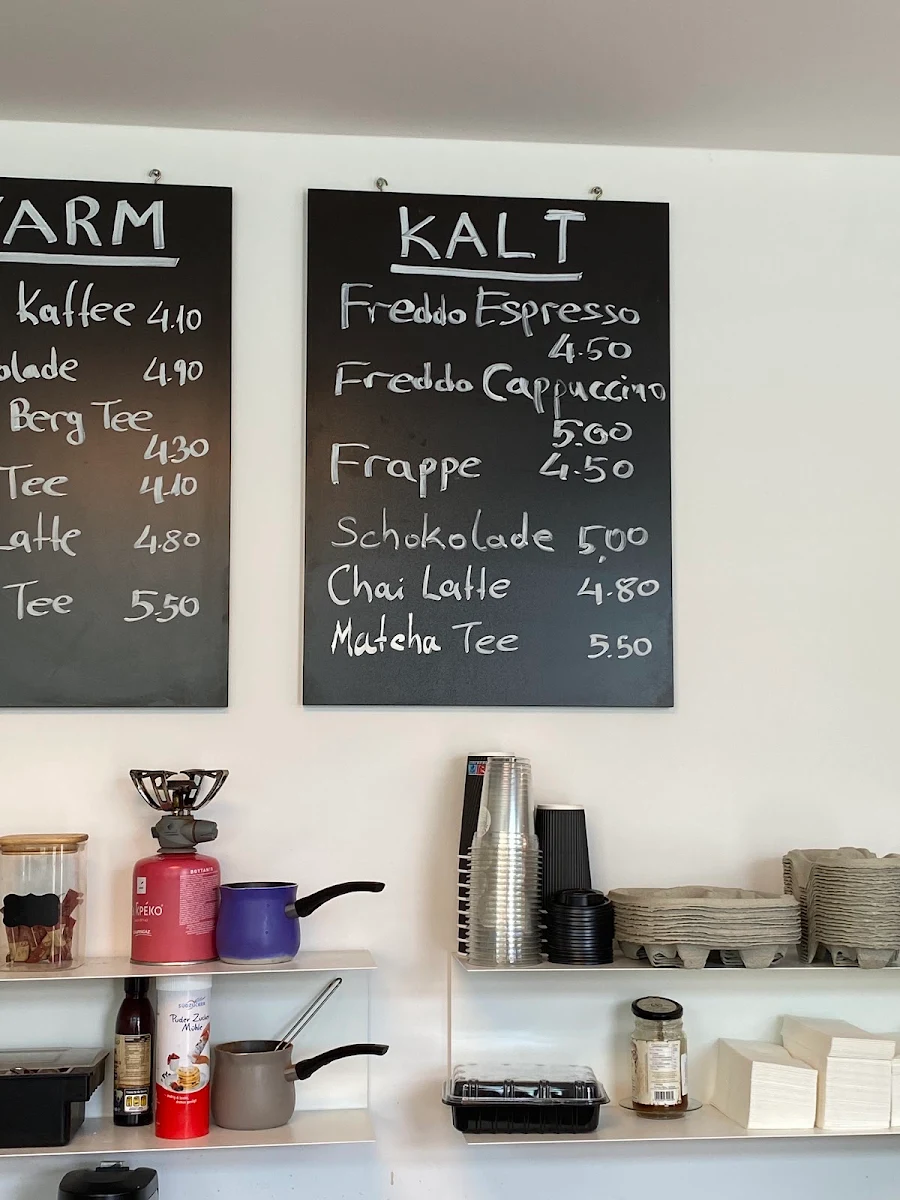 ARM
Kaffee 4.10
olade 4.90
Berg Tee
4.30
Tee 4.10
Latte 4.80
Tee 5.50
KALT
Freddo Espresso
4.50
Freddo Cappuccino
5.00
Frappe 4.50
Schokolade 5,00
Chai Latte 4.80
Matcha Tee 5.50
Puder Zucker
Mühle